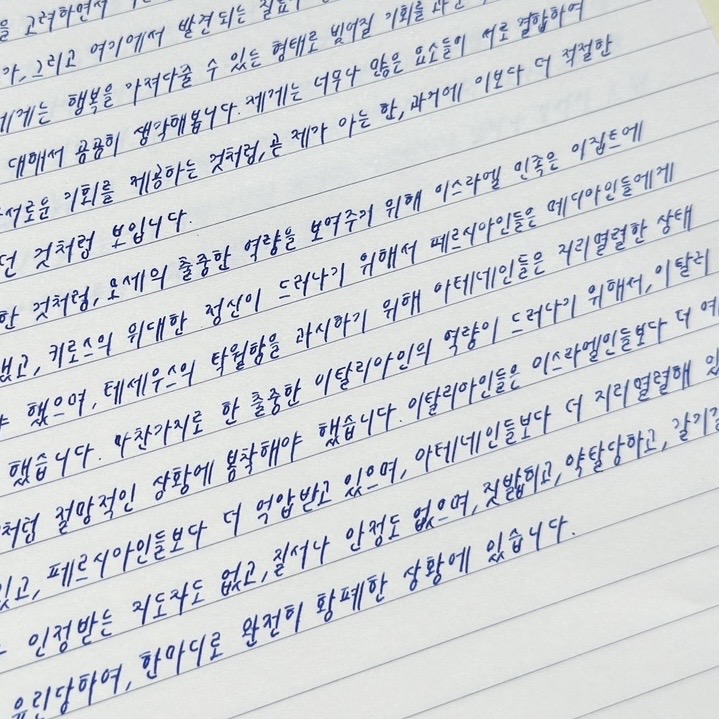 을 고려하면서
가, 그리고 여기에서 발견되는
에게는 행복을 가져다줄 수 있는 형태로 빚어질 기회를
대해서 곰곰히 생각해봅니다. 제게는 너무나 많은 요소들이 서로 결합하여
서로운 기회를 제공하는 것처럼, 곧 제가 아는 한, 과거에 이보다 더 적절한
던 것처럼 보입니다.
한 것처럼, 모세의 출중한 역량을 보여주기 위해 이스라엘 민족은 이집트에
했고, 키로스의 위대한 정신이 드러나기 위해서 페르시아인들은 메디아인들에게
야 했으며, 테세우스의 탁월함을 과시하기 위해 아테네인들은 지리멸렬한 상태
했습니다. 마찬가지로 한 출중한 이탈리아인의 역량이 드러나기 위해서, 이탈리
처럼 절망적인 상황에 봉착해야 했습니다. 이탈리아인들은 이스라엘인들보다 더 예
있고, 페르시아인들보다 더 억압받고 있으며, 아테네인들보다 더 지리멸렬해 있
인정받는 지도자도 없고, 질서나 안정도 없으며, 짓밟히고, 약탈당하고, 갈기갈
유린당하여, 한마디로 완전히 황폐한 상황에 있습니다.